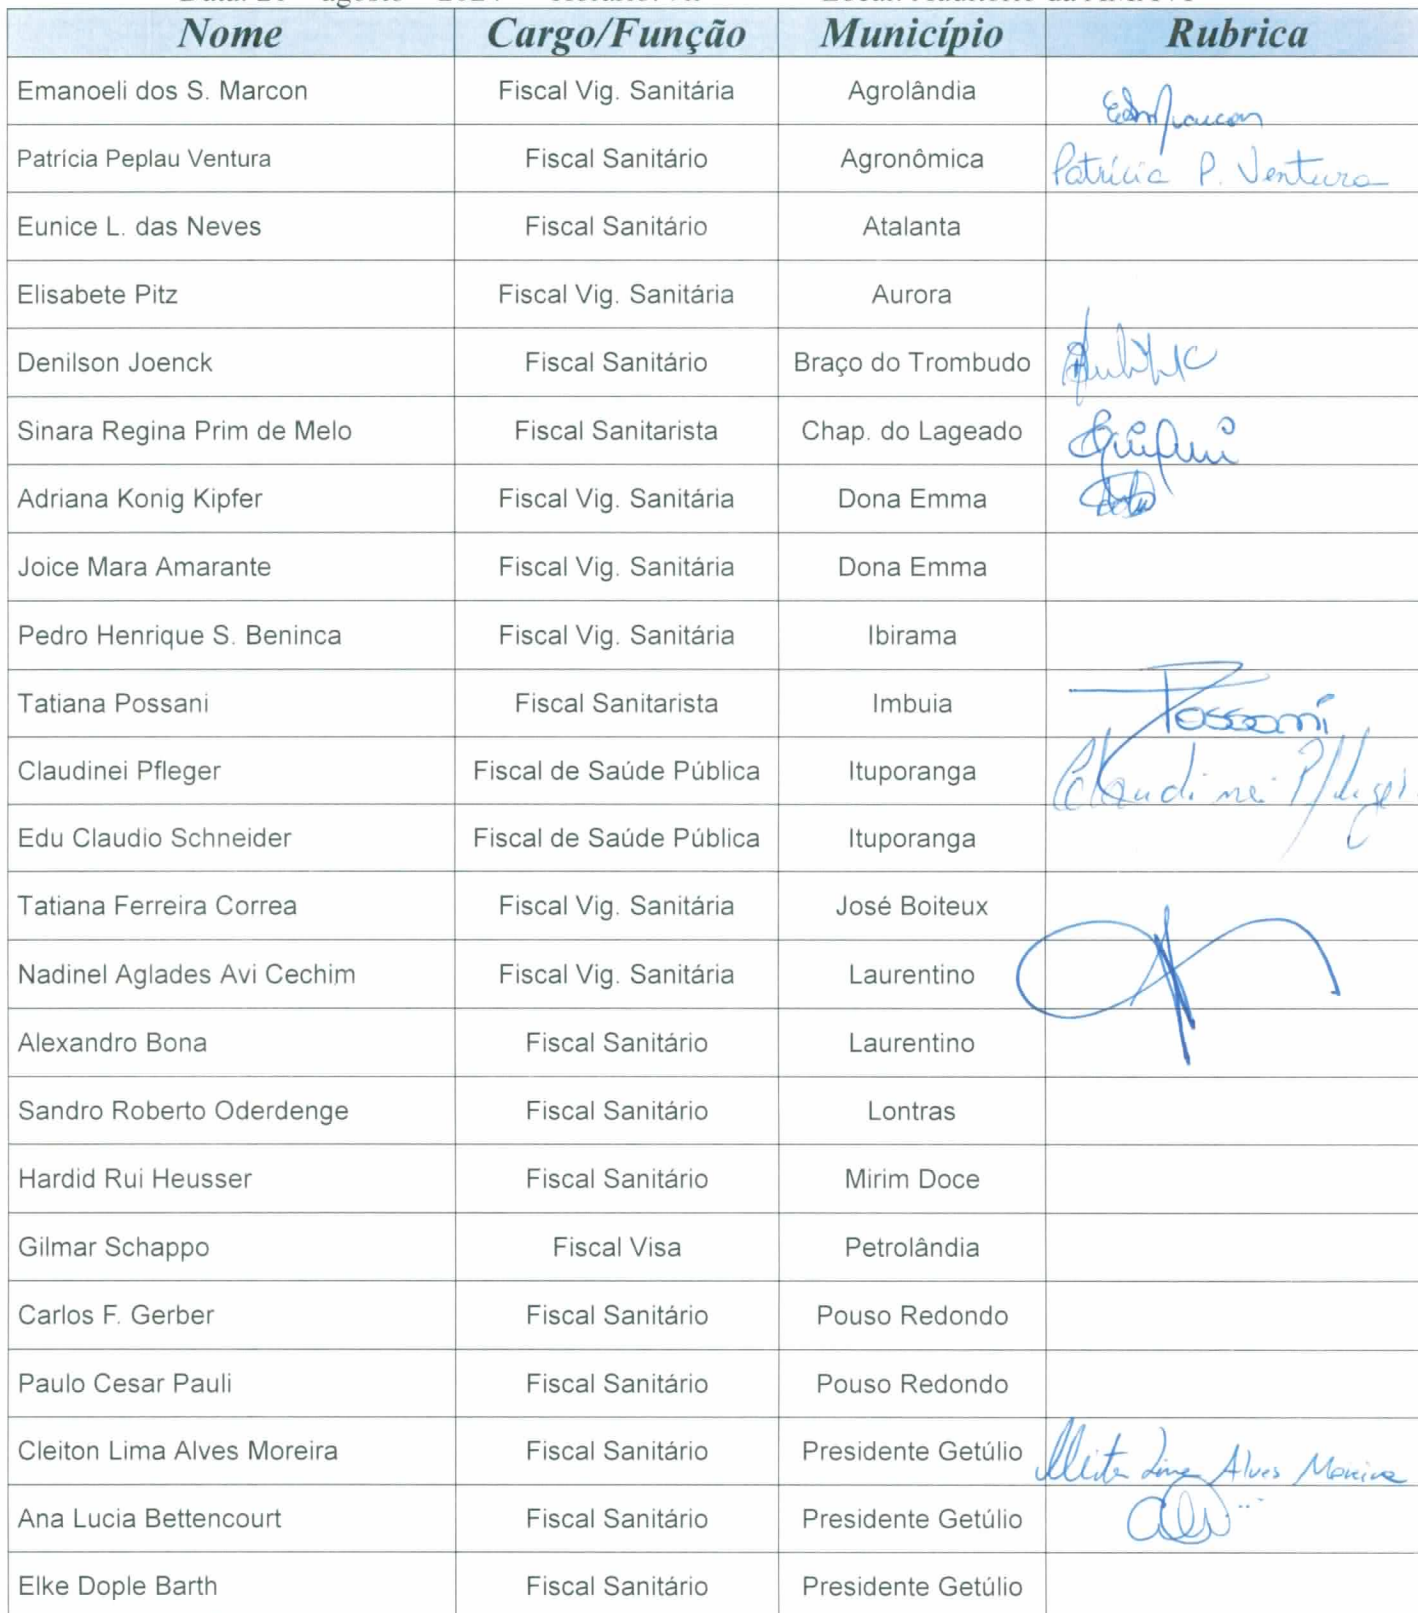 Nome Cargo/Função Município Rubrica
Emanoeli dos S. Marcon Fiscal Vig. Sanitária Agrolândia
Patrícia Peplau Ventura Fiscal Sanitário Agronômica Patrícia P. Ventura
Eunice L. das Neves Fiscal Sanitário Atalanta
Elisabete Pitz Fiscal Vig. Sanitária Aurora
Denilson Joenck Fiscal Sanitário Braço do Trombudo
Sinara Regina Prim de Melo Fiscal Sanitarista Chap. do Lageado
Adriana Konig Kipfer Fiscal Vig. Sanitária Dona Emma
Joice Mara Amarante Fiscal Vig. Sanitária Dona Emma
Pedro Henrique S. Beninca Fiscal Vig. Sanitária Ibirama
Tatiana Possani Fiscal Sanitarista Imbuia Possani
Claudinei Pfleger Fiscal de Saúde Pública Ituporanga Claudinei Pfleger
Edu Claudio Schneider Fiscal de Saúde Pública Ituporanga
Tatiana Ferreira Correa Fiscal Vig. Sanitária José Boiteux
Nadinel Aglades Avi Cechim Fiscal Vig. Sanitária Laurentino
Alexandro Bona Fiscal Sanitário Laurentino
Sandro Roberto Oderdenge Fiscal Sanitário Lontras
Hardid Rui Heusser Fiscal Sanitário Mirim Doce
Gilmar Schappo Fiscal Visa Petrolândia
Carlos F. Gerber Fiscal Sanitário Pouso Redondo
Paulo Cesar Pauli Fiscal Sanitário Pouso Redondo
Cleiton Lima Alves Moreira Fiscal Sanitário Presidente Getúlio Cleiton Lima Alves Moreira
Ana Lucia Bettencourt Fiscal Sanitário Presidente Getúlio
Elke Dople Barth Fiscal Sanitário Presidente Getúlio